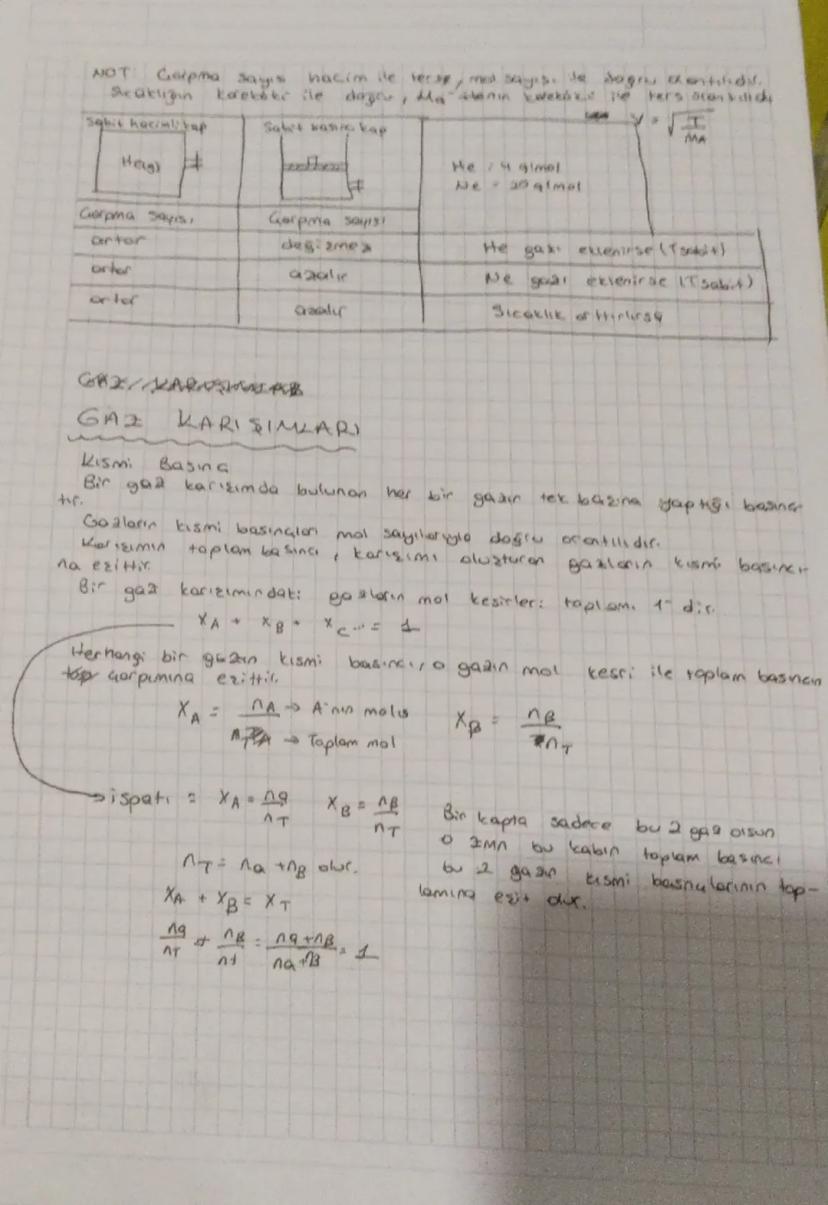 NOT: Çarpma sayısı hacim ile ters, mol sayısı ile doğru orantılıdır.
Sıcaklığın karekökü ile doğru, MA'sının karekökü ile ters orantılıdır
V = √T/MA
Sabit hacimli kap
Sabit basınç kap
He(g)
He : 4 g/mol
Ne = 20 g/mol
Çarpma sayısı Çarpma sayısı
artar değişmez He gazı eklenirse (T sabit)
artar azalır Ne gazı eklenirse (T sabit)
artar azalır Sıcaklık arttırılırsa
GAZ KARIŞIMLARI
Kısmi Basınç
Bir gaz karışımda bulunan her bir gazın tek başına yaptığı basınç
tır.
Gazların kısmi basınçları mol sayılarıyla doğru orantılıdır.
Karışımın toplam basıncı, karışımı oluşturan gazların kısmi basıncı
na eşittir.
Bir gaz karışımındaki gazların mol kesirleri toplamı 1' dir.
XA + XB + XC ... = 1
Herhangi bir gazın kısmi basıncı, o gazın mol kesri ile toplam basıncın
çarpımına eşittir.
XA = nA/nT → A'nın molü → Toplam mol XB = nB/nT
ispatı = XA = na/nT XB = nB/nT
nT = na + nB olur.
XA + XB = XT
na/nT + nB/nT = na+nB/na+nB = 1
Bir kapta sadece bu 2 gaz olsun
o zmn bu kabın toplam basıncı
bu 2 gazın kısmi basınçlarının top-
lamına eşit olur.